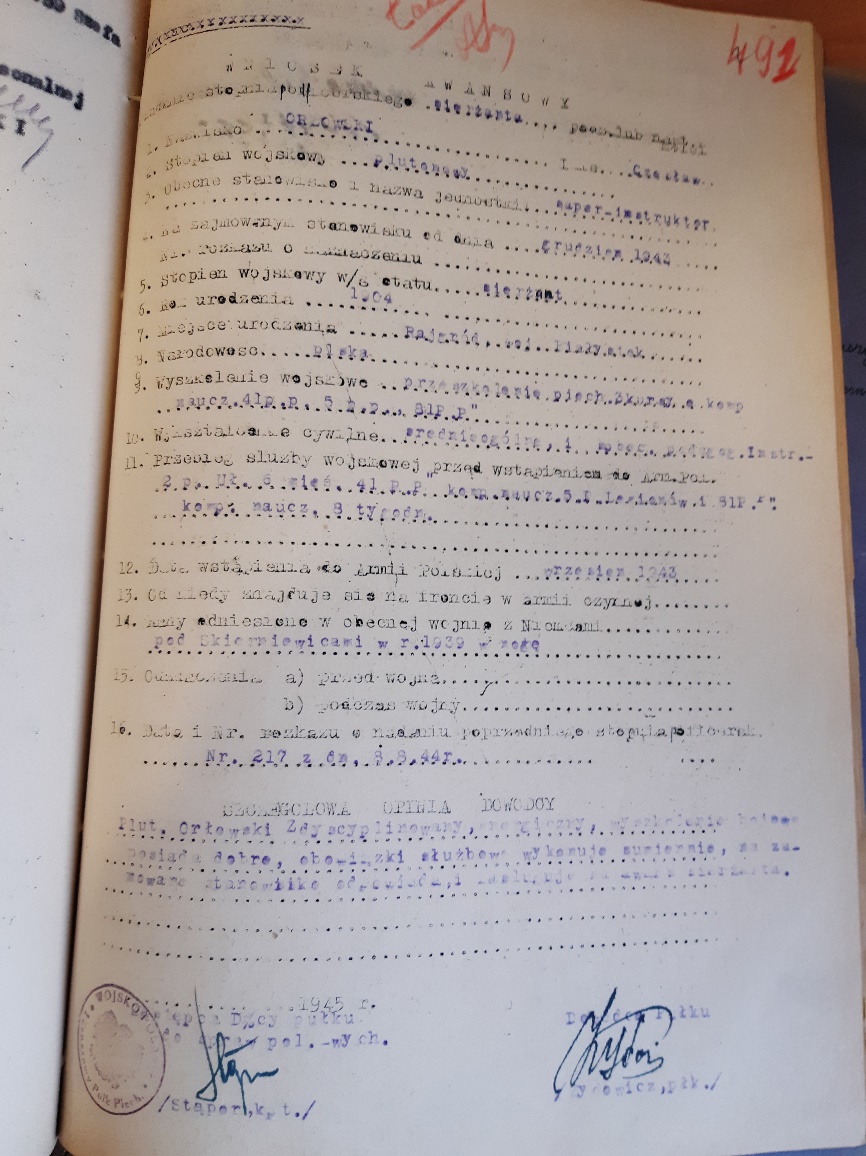 szefa
sonalnej
K I
xxxxxxxxxxxxxx
491
W N I O S E K   A W A N S O W Y
stopnia podoficerskiego .sierżanta.... pods.lub
1. Nazwisko ... ORŁOWSKI ........... Imię... Czesław..
2. Stopień wojskowy ... plutonowy ..........
3. Obecne stanowisko i nazwa jednostki... super-instruktor.
4. Na zajmowanym stanowisku od dnia .... grudzień 1943 ....
Nr. rozkazu o naznaczeniu ....................
5. Stopień wojskowy w/g etatu..... sierżant ...........
6. Rok urodzenia .... 1904 ....................
7. Miejsce urodzenia ..... Rajgród, woj. Białystok.....
8. Narodowość..... polska ....................
9. Wyszkolenie wojskowe .. przeszkolenie piech. komp
naucz.41p.p. 5 p.p., 81P.P"
10. Wykształcenie cywilne.. średnieogólne, i Instr.-
11. Przebieg służby wojskowej przed wstąpieniem do Arm.Pol.
2 p. Uł. 6 mieś. 41 P.P" komp.naucz.5.P.Legionów.i 81P."".
komp. naucz. 8 tygodn.
....................
12. Data wstąpienia do Armii Polskiej ... wrzesień 1943 ....
13. Od kiedy znajduje się na froncie w armii czynnej........
14. Rany odniesione w obecnej wojnie z Niemcami..........
pod Skierniewicami w r.1939 w nogę
15. Odznaczenia a) przed wojną....................
b) podczas wojny....................
16. Data i Nr. rozkazu o nadaniu poprzedniego stopnia podoficersk.
...... Nr. 217 z dn. 8.8.44r...............
SZCZEGÓŁOWA OPINIA DOWÓDCY
Plut. Orłowski Zdyscyplinowany, energiczny, wyszkolenie bojowe
posiada dobre, obowiązki służbowe wykonuje sumiennie, na za-
mowane stanowisko odpowiada, i zasługuje na awans sierżanta.
............1945 r.
Zastępca D-cy pułku
do spraw pol.-wych.
/Stąpor,kpt./
Dowódca Pułku
płk./